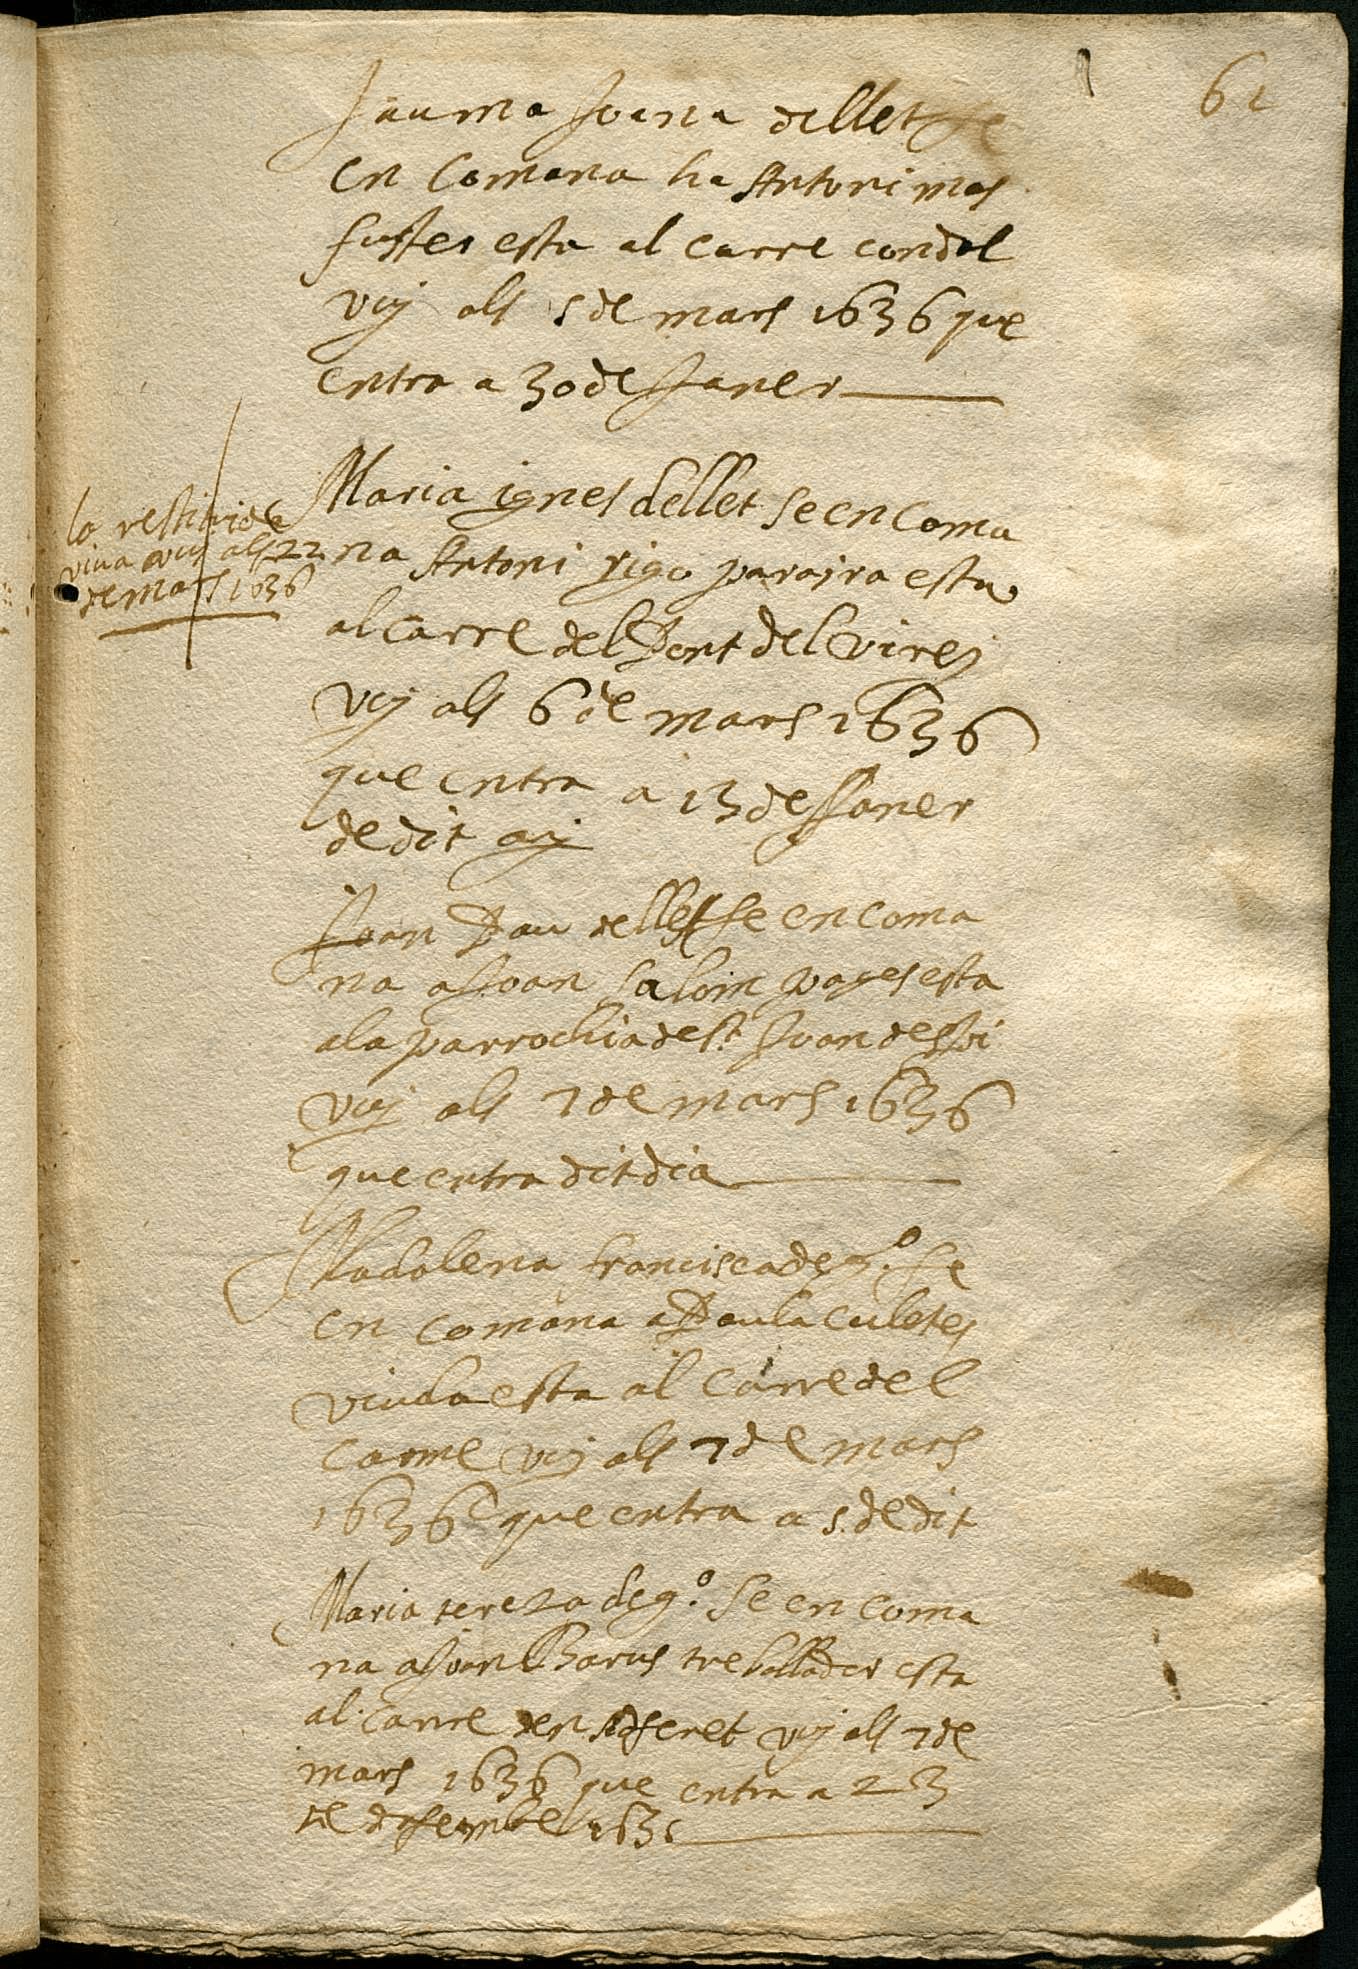 61
Jauma Joana de llet se
en comana ha Antoni mas
fuster esta al carre condal
vuy als 5 de mars 1636 que
entra a 30 de Janer
Maria ignes de llet se en coma
na Antoni rigo parayra esta
al carre del Pont del virey
vuy als 6 de mars 1636
que entra a 13 de Janer
de dit añy
la restituide
viua vuy als 22
de mars 1636
Joan Pau de llet se en coma
na a Joan pages esta
a la parrochia de st. Joan despi
vuy als 7 de mars 1636
que entra dit dia
Madalena francisca de gº. se
en comana a Paula culetes
viuda esta al carre del
carme vuy als 7 de mars
1636 que entra a 5 de dit
Maria tereza de gº. se en coma
na a Joan Barus treballador esta
al carre den vuy als 7 de
mars 1636 que entra a 23
de desembre 1635